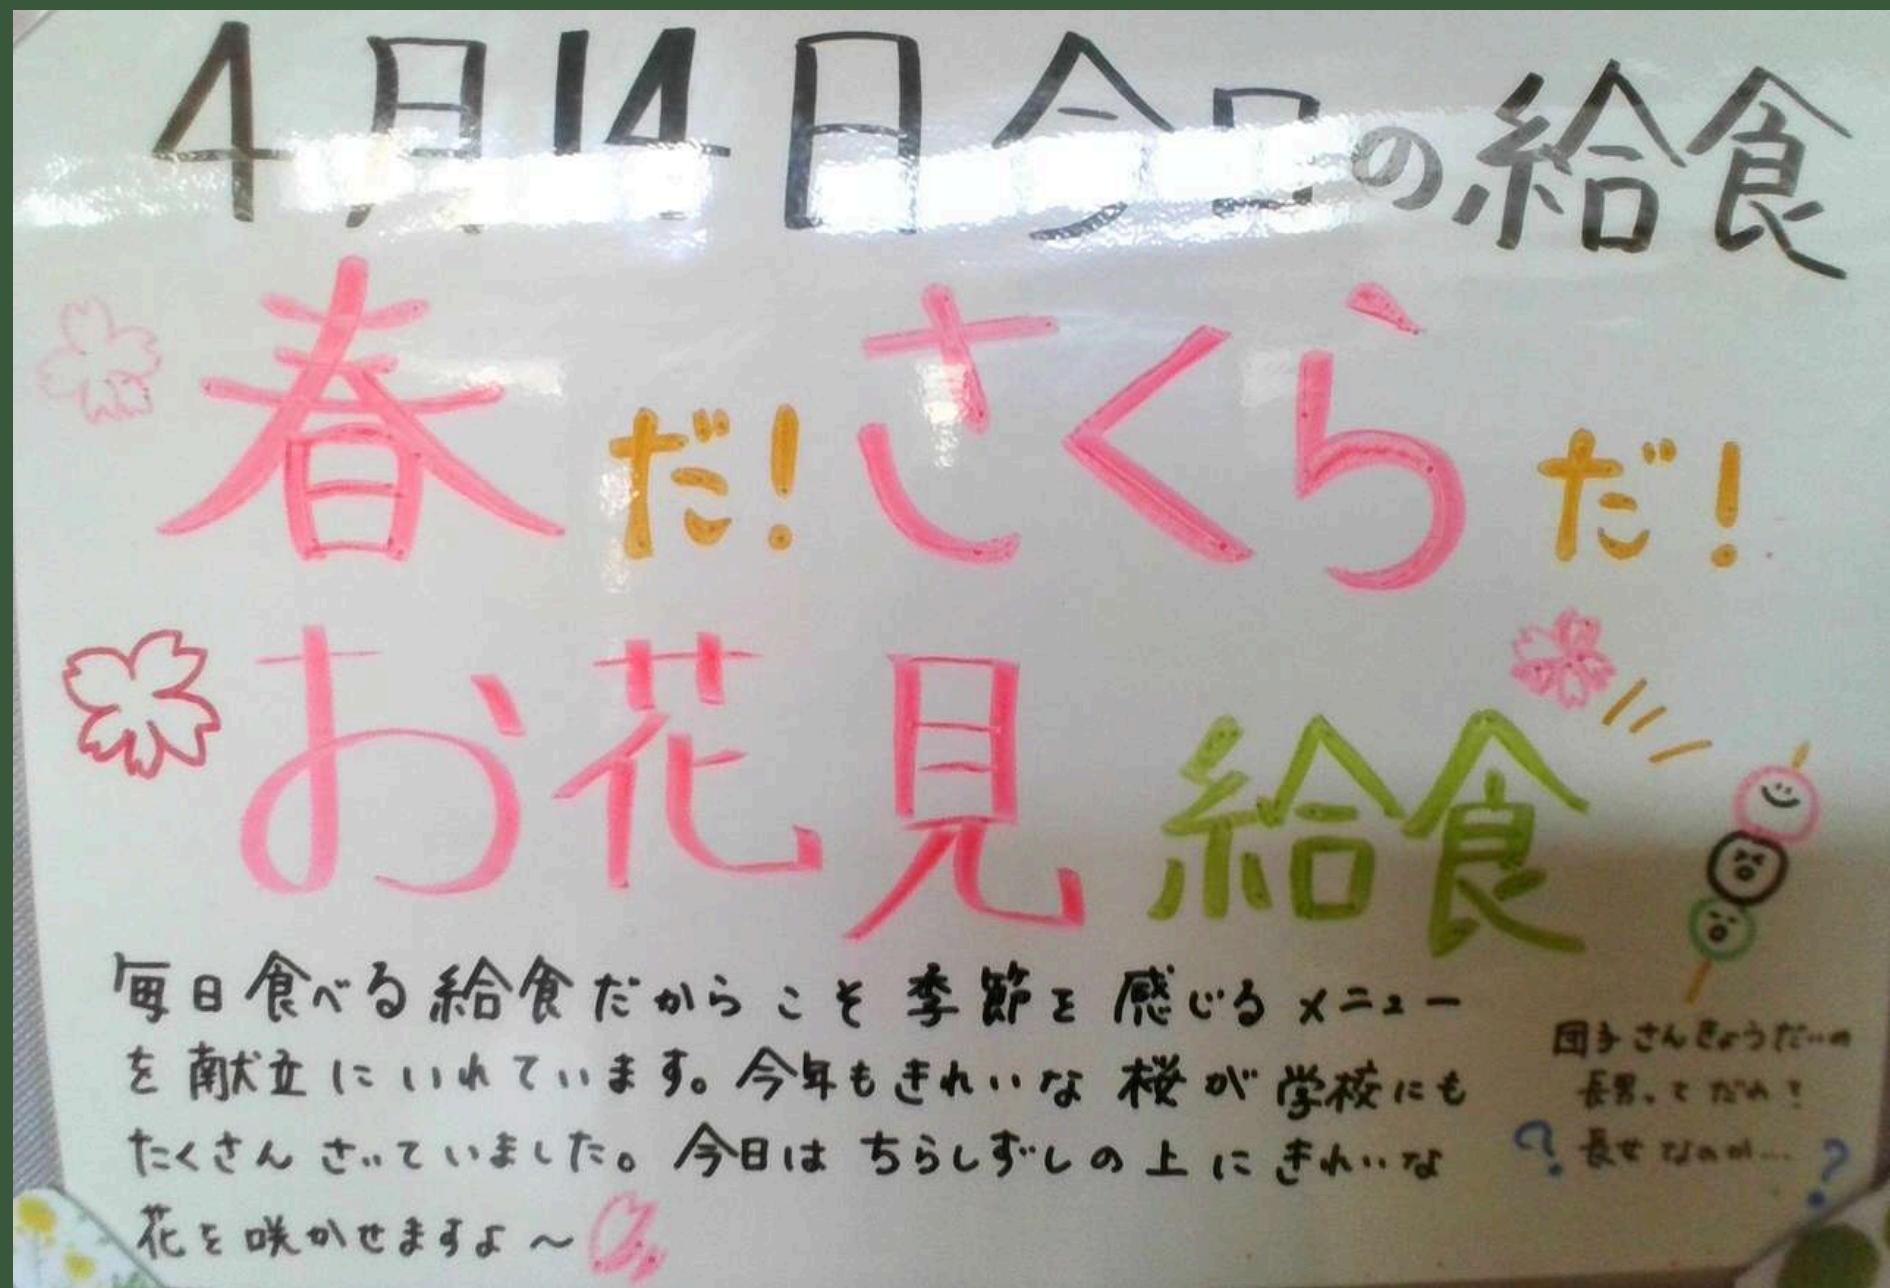 4月14日 今日の給食
春だ！さくらだ！
お花見給食
毎日食べる給食だからこそ季節を感じるメニュー
を献立にいれています。今年もきれいな桜が学校にも
たくさんさいていました。今日はちらしずしの上にきれいな
花を咲かせますよ～
団子さんきょうだいの
長男ってだれ？
なのか…
？ ？